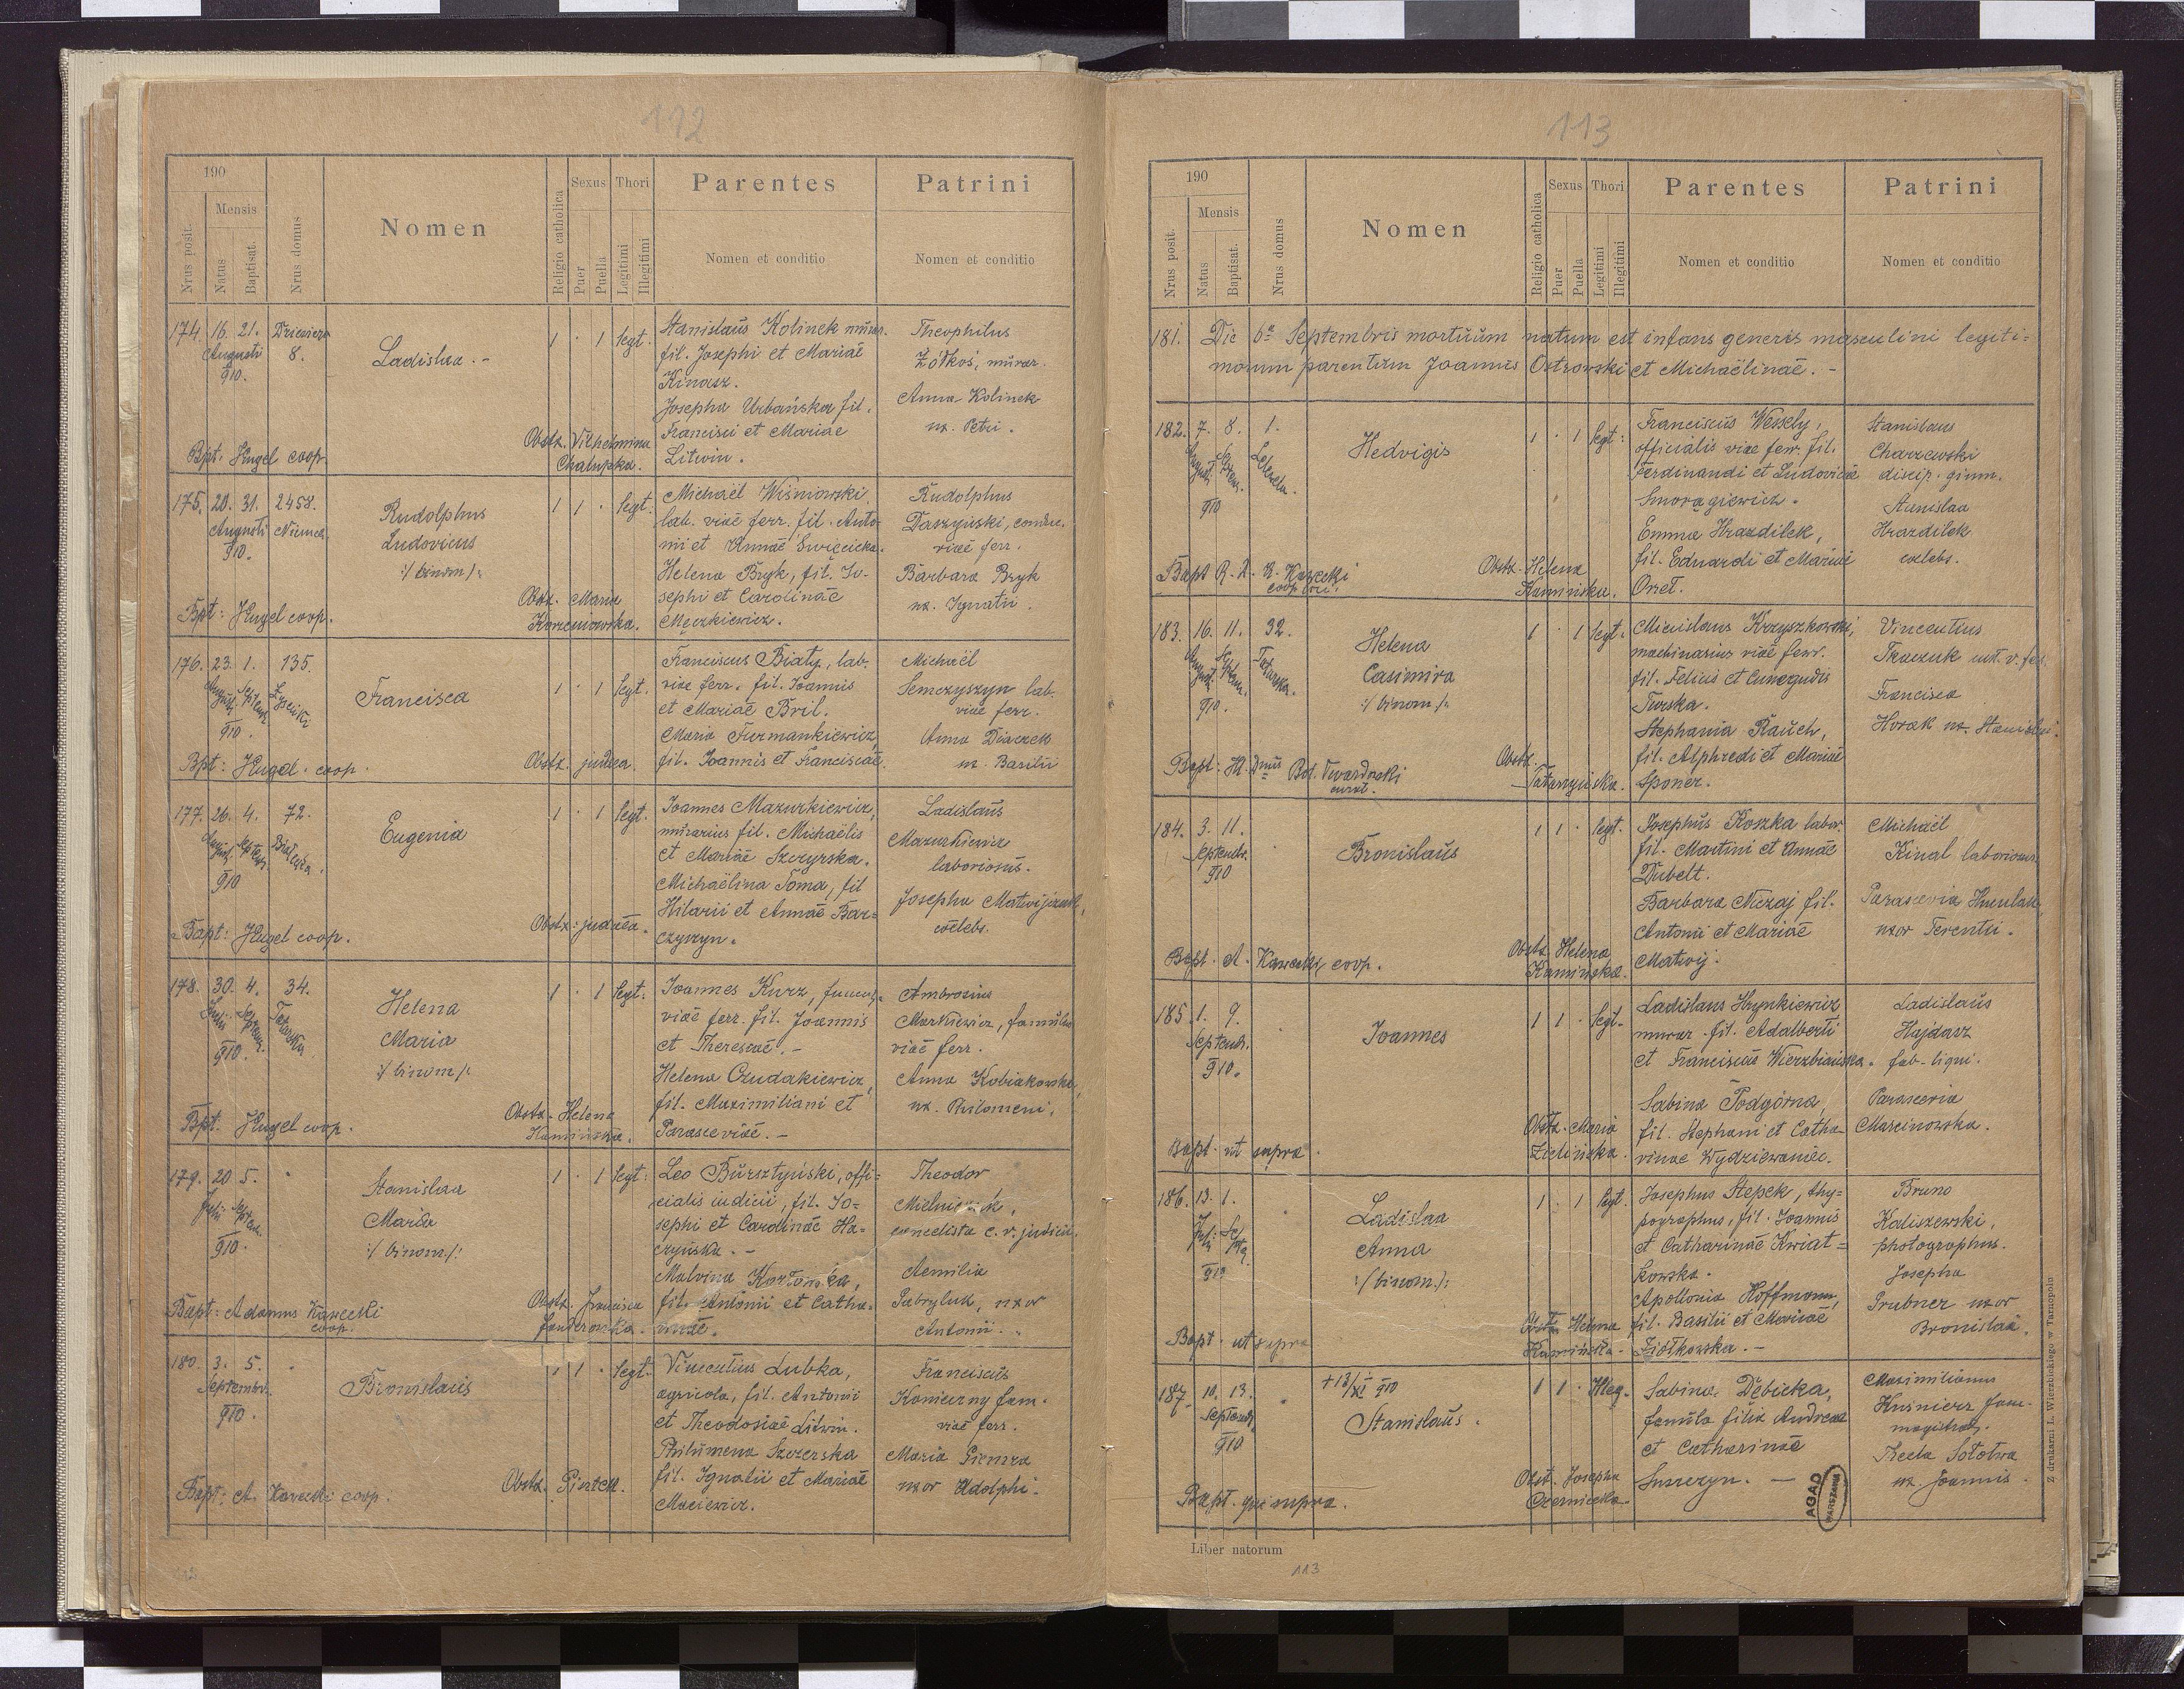 112
190
Nrus posit.
Mensis
Natus
Baptisat.
Nrus domus
Nomen
Religio catholica
Sexus
Puer
Puella
Thori
Legitimi
Illegitimi
Parentes
Nomen et conditio
Patrini
Nomen et conditio
174. 16. 21.
Augusti 8.
910.
Ladislaa.-
1 · 1 legt.
Stanislaus Kolinek murar.
fil. Josephi et Mariae
Kinasz.
Josepha Urbańska fil.
Francisci et Mariae
Litwin.
Theophilus
Żółkoś, murar.
Anna Kolinek
ux. Petri.
Obstx. Vilhelmina
Chalupka.
Bpt: Hugel coop.
175. 20. 31. 2458.
Augusti
910.
Rudolphus
Ludovicus
:/binom/:
1 1 · legt.
Michaël Wiśniowski
lab. viae ferr. fil. Anto-
nii et Annae Swięcicka.
Helena Bryk, fil. Jo-
sephi et Carolinae
Męczkiewicz.
Rudolphus
Daszyński, conduc.
viae ferr.
Barbara Bryk
ux. Ignatii.
Obstx. Maria
Korzeniowska.
Bpt: Hugel coop.
176. 23. 1. 135.
910.
Francisca
1 · 1 legt.
Franciscus Biały, lab.
viae ferr. fil. Joannis
et Mariae Bril.
Maria Furmankiewicz,
fil. Joannis et Franciscae.
Michaël
Semczyszyn lab.
viae ferr.
Anna Diaczek
ux. Basilii
Obstx. judaea.
Bpt: Hugel. coop.
177. 26. 4. 72.
910
Eugenia
1 · 1 legt.
Joannes Mazurkiewicz,
murarius fil. Michaëlis
et Mariae Szczyrska.
Michaëlina Toma, fil
Hilarii et Annae Bar-
czyszyn.
Ladislaus
Mazurkiewicz
laboriosus.
Josepha Matwijczuk,
coelebs.
Obstx: judaea.
Bapt: Hugel coop.
178. 30. 4. 34.
910.
Helena
Maria
:/binom/:
1 · 1 legt.
Joannes Kurz,
viae ferr. fil. Joannis
et Theresiae.-
Helena Czudakiewicz,
fil. Maximiliani et
Parasceviae.-
Ambrosius
Markiewicz, famulus
viae ferr.
Anna Kobiakowska,
ux. Philomeni.
Obstx. Helena
Kamińska.
Bpt: Hugel coop.
179. 20 5.
910.
Stanislaa
Maria
:/binom/:
1 · 1 legt:
Leo Bursztyński, offi-
cialis iudicii, fil. Jo-
sephi et Carolinae Ha-
czyńska.-
Malvina
fil. Antonii et Catha-
rinae.
Theodor
cancelista c. r. judicii.
Aemilia
Gabryluk, uxor
Antonii.
Obstx. Francisca
Bapt: Adamus Kawecki
coop.
180. 3. 5.
Septembr.
910.
Bronislaus
1 1 · legt.
Vincentius Lubka,
agricola, fil. Antonii
et Theodosiae Litwin.
Philomena Szczerska
fil. Ignatii et Mariae
Maciewicz.
Franciscus
Komierny fam.
viae ferr.
Maria
uxor Adolphi.
Obstx. Piontek.
Bapt: A. Kawecki coop.
113
190
Nrus posit.
Mensis
Natus
Baptisat.
Nrus domus
Nomen
Religio catholica
Sexus
Puer
Puella
Thori
Legitimi
Illegitimi
Parentes
Nomen et conditio
Patrini
Nomen et conditio
181. Die 6a Septembris mortuum natum est infans generis masculini legiti-
morum parentum Joannis Ostrowski et Michaëlinae.-
182. 7. 8. 1.
910
Hedvigis
1 · 1 legt:
Franciscus Wessely,
officialis viae ferr. fil.
Ferdinandi et Ludovicae
Smoragiewicz.
Emma Hrazdilek,
fil. Eduardi et Mariae
Orzet.
Stanislaus
Charzewski
discip. gimn.
Stanislaa
Hrazdilek
coelebs.
Obstx. Helena
Kamińska.
Bapt R. D. A. Kawecki
coop.
183. 16. 11. 32.
910.
Helena
Casimira
:/binom/:
1 · 1 legt.
Micislaus Krzyszkowski,
machinarius viae ferr.
fil. Felicis et Cunegudis
Turska.
Stephania Rauch,
fil. Alphredi et Mariae
Sponer.
Vincentius
Tkaczuk
Francisca
Horak ux. Stanislai.
Obstx.
Bapt: Bol. Twardocki
184. 3. 11.
Septembr.
910
Bronislaus
1 1 · legt.
Josephus Koszka labor.
fil. Martini et Annae
Dubelt.
Barbara Niczaj fil.
Antonii et Mariae
Matwij.
Michaël
Kinal laboriosus
Parascevia
uxor Terentii.
Obstx Helena
Kamińska.
Bapt. A. Kawecki, coop.
185. 1. 9.
Septembr.
910.
Joannes
1 1 · legt.
Ladislaus Hrynkiewicz
murar. fil. Adalberti
et Franciscae Wierzbiańska.
Sabina Podgórna,
fil. Stephani et Catha-
rinae Wydziewaniec.
Ladislaus
Hajdasz
fab-ligni.
Parascevia
Marcinowska.
Obstx. Maria
Zielińska.
Bapt. ut supra.
186. 13. 1.
910
Ladislaa
Anna
:/binom/:
1 · 1 legt.
Josephus Stepek, thy-
pographus, fil. Joannis
et Catharinae Kwiat-
kowska.
Apollonia Hoffmann,
fil. Basilii et Mariae
Ziółkowska.-
Bruno
Kaliszewski,
photographus.
Josepha
Grubner uxor
Bronislai.
Obstx Helena
Kamińska.
Bapt. ut supra
187. 10. 13.
Septembr.
910
+13/XI 910
Stanislaus.
1 1 · Illeg.
Sabina Dębicka,
famula filia Andreae
et Catharinae
Maximilianus
Kuśnierz fam.
magistrat.
Thecla Sołotwa
ux. Joannis.
Obst. Josepha
Bapt. qui supra.
AGAD
WARSZAWA
Liber natorum
113
Z drukarni L. Wierzbickiego w Tarnopolu